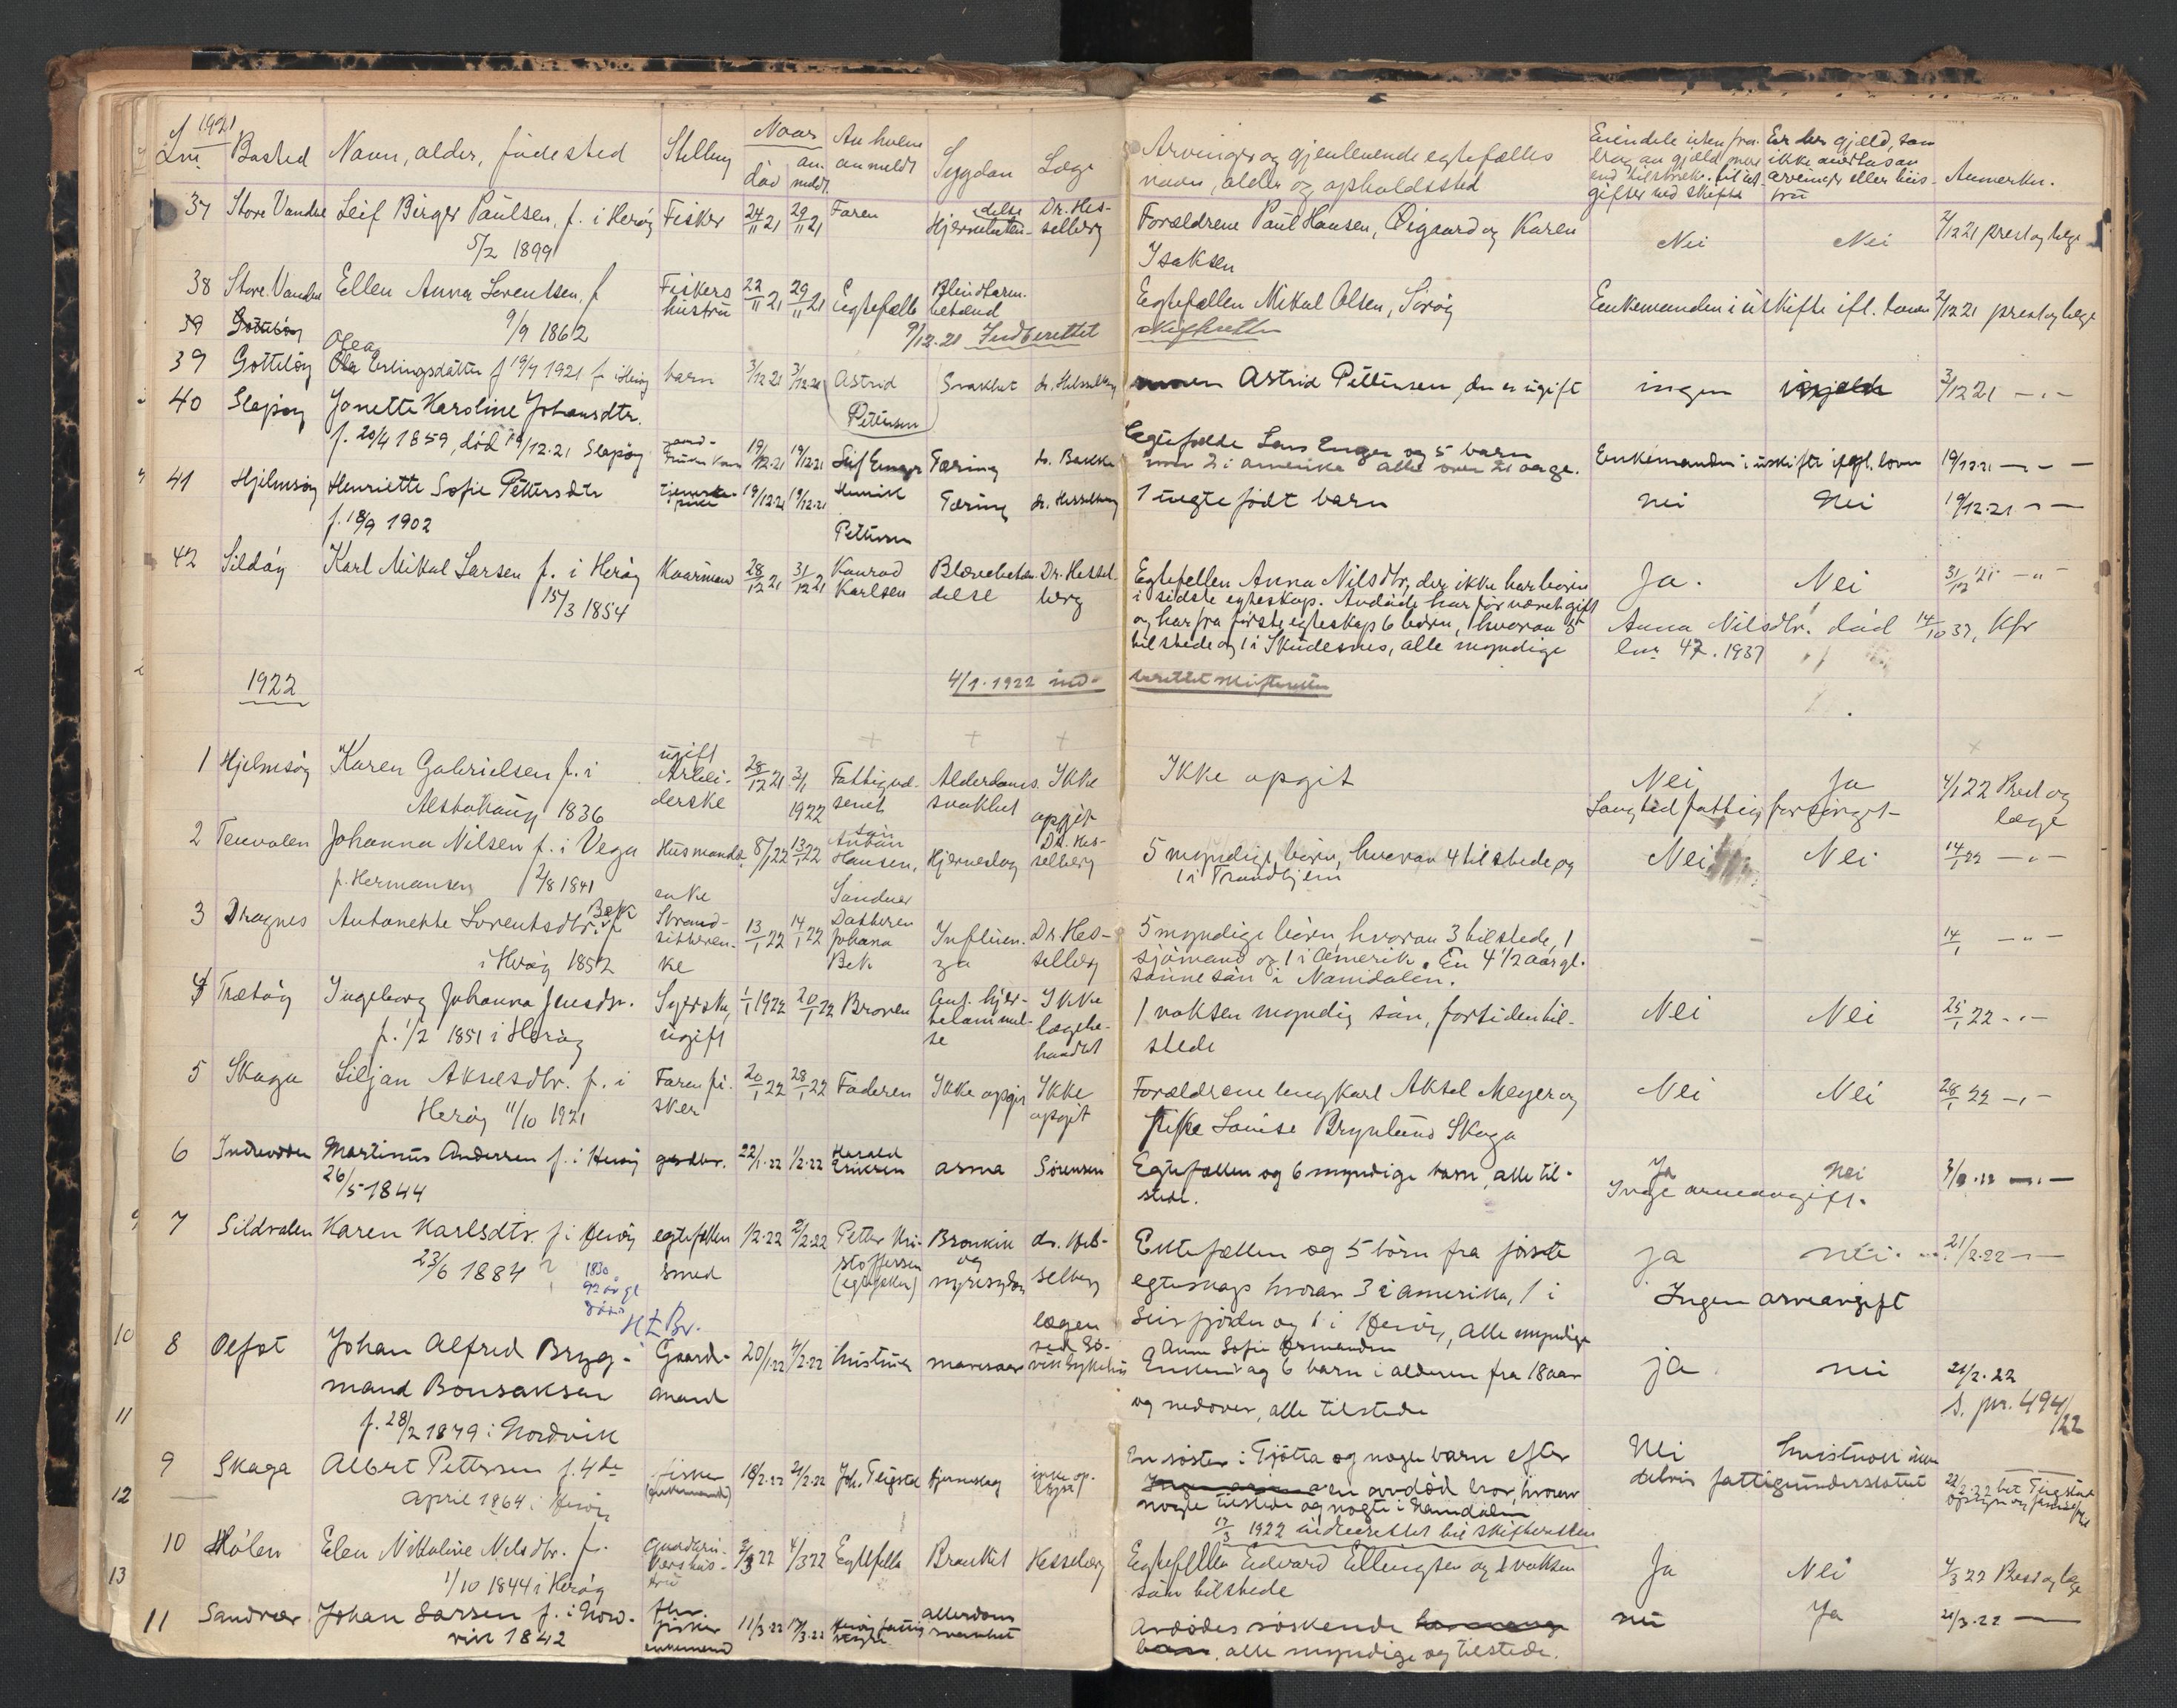 1921
Lnr Bosted Navn, alder, fødested Stilling Naar død anmeldt Av hvem anmeldt Sygdom Læge Arvinger og gjenlevende egtefælles navn, alder og opholdssted Anmerkn.
37 Store Vandve Leif Birger Paulsen, f. i Herøy Fisker 24/11 21 29/11 21 Faren Hjernebeten- delse Dr. Hes- selberg Forældrene Paul Hansen, Øigaard og Karen Nei Nei 2/12 21 prest og læge
5/2 1899 Isaksen
38 Store Vandve Ellen Anna Lorentsen, f Fiskers hustru 22/11 21 29/11 21 Egtefælle Blindtarm. betænd Egtefællen Mikal Olsen, Sørøy Enkemanden i uskifte ifl. loven 2/12 21 prest og læge
9/9 1862 9/12.21 Indberettet skifteretten
39 Gottløy
39 Gottløy Olea Erlingsdatter f 19/9 1921 f i Herøy barn 3/12 21 3/12 21 Astrid Pettersen Svakhet dr. Hesselberg Astrid Pettersen, der er ugift ingen 3/12 21 -"-
40 Slapøy Janette Karoline Johansdtr.
f. 20/4 1859, død 19/12.21 Slapøy 19/12.21 19/12.21 Leif Enger Tæring dr. Bakke Egtefælde Lars Enger og 5 barn
2 i amerika alle over 21 aar. Enkemanden i uskifte ifgl. loven 19/12.21 -"-
41 Hjelmsøy Henriette Sofie Pettersdtr tjeneste- pike 19/12.21 19/12.21 Henrik Pettersen Tæring dr. Hesselberg 1 uegte født barn nei Nei 19/12.21 -"-
f. 18/9 1902
42 Sildøy Karl Mikal Larsen f. i Herøy Kaarmand 28/12 21 31/12 21 Konrad Karlsen Blærebeten- delse Dr. Hessel- berg Egtefellen Anna Nilsdtr, der ikke har børn Ja. Nei 31/12 21 -"-
15/3 1854 i sidste egteskap. Avdøde har før været gift
og har fra første egteskap 6 børn, hvorav 5 Anna Nilsdtr. død 14/10 37, Kfr
tilstede og 1 i Skudesnes, alle myndige lnr 47. 1937
1922 4/1.1922 ind- berettet skifteretten
1 Hjelmsøy Karen Gabrielsen f. i ugift Arbei- derske 28/12 21 3/1 1922 Fattigvæ- senet Alderdoms- svakhet Ikke opgit Ikke opgit Nei Ja 4/1 22 Prest og læge
Alstahaug 1836 Langtid fattig forsørget
2 Tenvalen Johanna Nilsen f. i Vega Husmands enke 8/1 22 13/1 22 søn Anton Hansen, Sandnes Hjerneslag Dr. Hes- selberg 5 myndige børn, hvorav 4 tilstede og Nei Nei 14/1 22 -"-
f. Hermansen 2/8 1841 1 i Trondhjem
3 Dragnes Antonette Lorentsdtr. Bek f Strand- sitteren- ke 13/1 22 14/1 22 Datteren Johana Bek Influen- za Dr Hes- selberg 5 myndige børn, hvorav 3 tilstede, 1 14/1 -"-
i Herøy 1852 sjømand og 1 i Amerik. En 4 1/2 aar gl.
sønnesøn i Namdalen.
4 Tretøy Ingeborg Johanna Jensdtr. Syerske, ugift 1/1 1922 20/1 22 Broren Ant. hjer- telammel- se Ikke lægebe- handlet 1 voksen myndig søn, fortiden til- Nei Nei 25/1 22 -"-
f. 1/2 1851 i Herøy stede
5 Skaga Liljan Akselsdtr. f. i Faren fi- sker 20/1 22 28/1 22 Faderen Ikke opgit Ikke opgit Forældrene ungkarl Aksel Meyer og Nei Nei 28/1 22 -"-
Herøy 11/10 1921 Pike Louise Brynlund Skaga
6 Indrevalen Martinus Andersen f. i Herøy gaardbr. 22/1.22 1/2.22 Harald Eriksen asma Sørensen Egtefællen og 6 myndige barn, alle til- Ja nei -"-
26/5 1844 stede. Inge arveavgift.
7 Sildvalen Karen Karlsdtr. f i Herøy egtefellen smed 1/2.22 2/2.22 Petter Kri- stoffersen (egtefellen) Bronkit og nyresygdom dr. Hes- selberg Ektefællen og 5 börn fra første ja nei 21/2.22 -"-
23/6 1884 ? 1830 92 år gl egteskap hvorav 3 i amerika, 1 i Ingen arveavgift
Leirfjorden og 1 i Herøy, alle myndige
8 Oefot Johan Alfred Bryg- Gaard- mand 20/1.22 4/2.22 hustruen lægen ved Sø- vik Sykehus Anna Sofie Ormundsen
mand Bonsaksen Enken og 6 barn i alderen fra 18 aar ja nei 21/2.22
f. 28/2 1879 i Nordvik og nedover, alle tilstede s. jnr. 494/22
9 Skaga Albert Pettersen f. 4de fisker (enkemand) 18/2.22 21/2.22 Joh. Teigstad hjerneslag ikke op- lyst En søster i Tjøtta og nogle barn efter Nei
april 1864 i Herøy en avdød bror, hvorav delvis fattigunderstøttet
nogle tilstede og nogle i Namdalen
17/3 1922 indberettet til skifteretten
10 Hølen Elen Nikoline Nilsdtr. f. 2/3 22 4/3 22 Egtefelle Bronkit Hesselberg Egtefellen Edvard Ellingsen og 1 voksen Ja Nei 4/3 22 Prest og læge
1/10 1844 i Herøy søn tilstede
11 Sandvær Johan Larsen f. i Nord- fhv. fisker enkemand 11/3.22 17/3.22 Herøy fattig- vesen alderdoms svakhet Avdødes søskende nei Ja 21/3.22 -"-
vik 1842 alle myndige og tilstede.
10
11
12
13